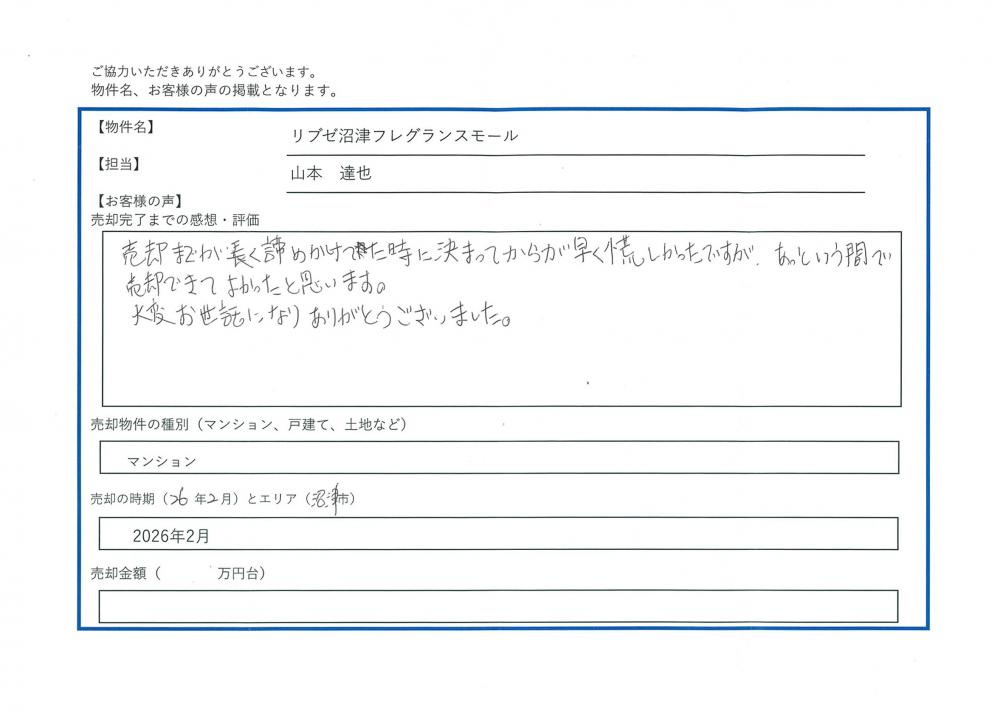 ご協力いただきありがとうございます。
物件名、お客様の声の掲載となります。
【物件名】
リブゼ沼津フレグランスモール
【担当】
山本　達也
【お客様の声】
売却完了までの感想・評価
売却までが長く諦めかけてた時に決まってからが早く慌しかったですが、あっという間で
売却できてよかったと思います。
大変お世話になりありがとうございました。
売却物件の種別（マンション、戸建て、土地など）
マンション
売却の時期（26年2月）とエリア（沼津市）
2026年2月
売却金額（　　　　万円台）